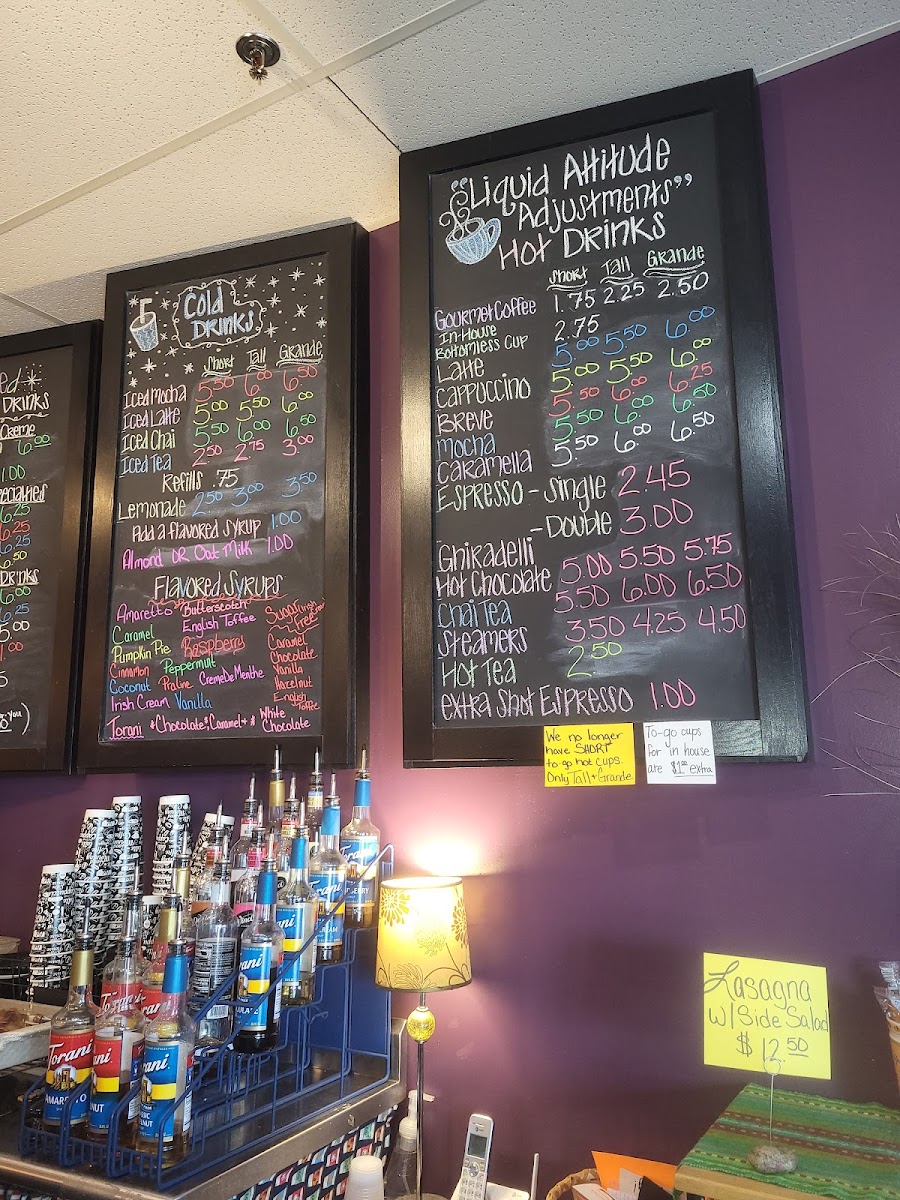 ed
DRINKS
Creme
6.00
1.00
6.25
6.25
6.25
6.50
DRINKS
6.00
6.25
5.00
1.00
Cold
DRINKS
Short Tall Grande
Iced Mocha 5.50 6.00 6.50
Iced Latte 5.00 5.50 6.00
Iced Chai 5.50 6.00 6.50
Iced Tea 2.50 2.75 3.00
Refills .75
Lemonade 2.50 3.00 3.50
Add a flavored syrup 1.00
Almond OR Oat Milk 1.00
Flavored Syrups
Amaretto Butterscotch Sugar Free
Caramel English Toffee
Pumpkin Pie Raspberry Caramel
Cinnamon Peppermint Chocolate
Coconut Praline Creme De Menthe Vanilla
Irish Cream Vanilla Hazelnut
English Toffee
Torani *Chocolate*, Caramel + * White Chocolate
"Liquid Attitude
Adjustments"
Hot Drinks
Short Tall Grande
Gourmet Coffee 1.75 2.25 2.50
In-House
Bottomless Cup 2.75
Latte 5.00 5.50 6.00
Cappuccino 5.00 5.50 6.00
Breve 5.50 6.00 6.25
Mocha 5.50 6.00 6.50
Caramella 5.50 6.00 6.50
Espresso - Single 2.45
- Double 3.00
Ghiradelli
Hot Chocolate 5.00 5.50 5.75
Chai Tea 5.50 6.00 6.50
Steamers 3.50 4.25 4.50
Hot Tea 2.50
extra Shot Espresso 1.00
We no longer
have SHORT
to go hot cups.
Only Tall + Grande
To-go cups
for in house
are $1.00 extra
Lasagna
w/ Side Salad
$ 12.50
Torani
AMARETTO
Torani
Torani
Torani
Torani
Torani